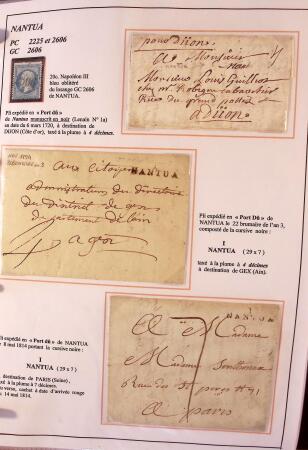 NANTUA
PC 2225 et 2606
GC 2606
20c. Napoléon III
bleu oblitéré
du losange GC 2606
de NANTUA.
Pli expédié en « Port Dû »
de Nantua manuscrit en noir (Lenain N° 1a)
en date du 6 mars 1720, à destination de
DIJON (Côte d'or), taxé à la plume à 4 décimes.
pour dijon
A Monsieur
Monsieur Louis
chez mr
Rue du grand
a dijon
NANTUA
aux citoyens
administrateurs du directoire
du district de gex
département de lain
a gex
Pli expédié en « Port Dû » de
NANTUA le 22 brumaire de l'an 3,
composté de la cursive noire :
1
NANTUA (29 x 7)
taxé à la plume à 4 décimes
à destination de GEX (Ain).
Pli expédié en « Port Dû » de NANTUA
8 mai 1814 portant la cursive noire :
1
NANTUA (29 x 7)
destination de PARIS (Seine),
à la plume à 7 décimes.
cachet à date d'arrivée rouge
14 mai 1814.
NANTUA
A Madame
Madame
rue
A paris